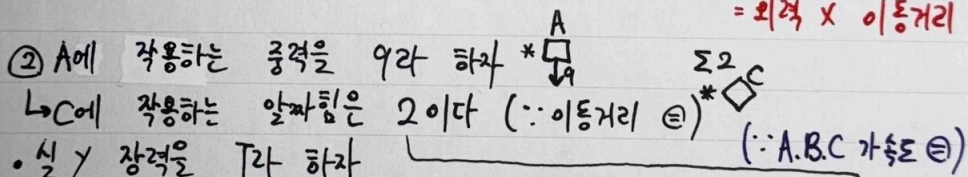 = 외력 × 이동거리
② A에 작용하는 중력을 9라 하자 * A 9
Σ2 * C
↳C에 작용하는 알짜힘은 2이다 (∵이동거리 ⊜)
(∵A.B.C 가속도 ⊜)
• 실 Y 장력을 T라 하자